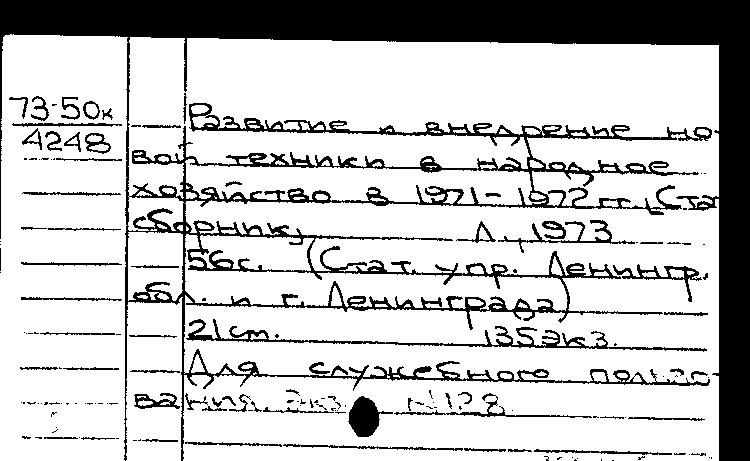 73-50к
4248
Развитие и внедрение но-
вой техники в народное
хозяйство в 1971-1972 гг. [Стат.
сборник]. Л., 1973
56с. (Стат. упр. Ленингр.
обл. и г. Ленинграда)
21 см. 135 экз.
Для служебного пользо-
вания. Экз. №128